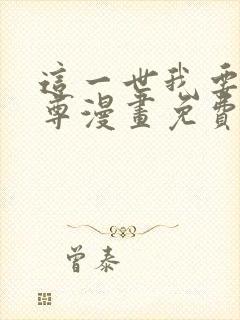 這一世我要
尊漫畫免費
曾泰